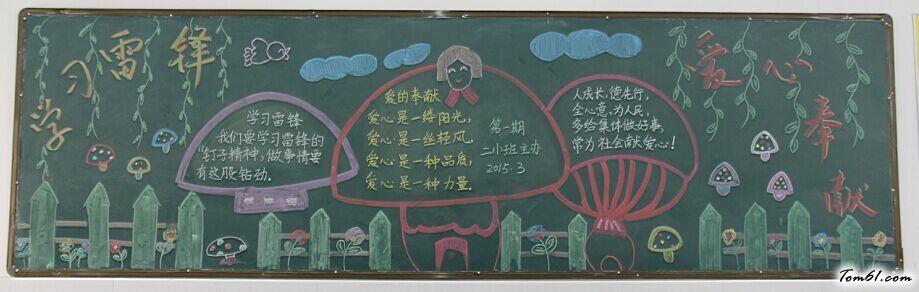 学习雷锋
爱心奉献
学习雷锋
我们要学习雷锋的
“钉子精神”,做事情要
有这股钻劲.
爱的奉献
爱心是一缕阳光,
爱心是一丝轻风,
爱心是一种品质,
爱心是一种力量.
第一期
二小班主办
2015.3
人成长,德先行,
全心意,为人民,
多给集体做好事,
常为社会献爱心!
Tom61.com